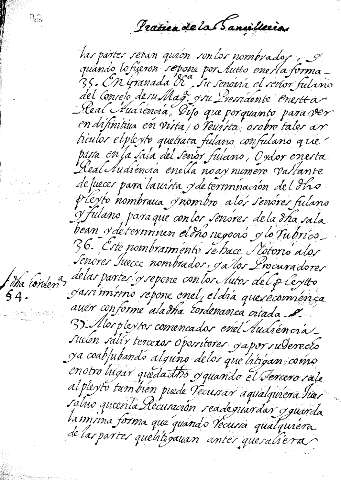 Pratica de la Canzilleria
las partes seran quien son los nombrados. Y
quando le fueron se pone por Autto en esta forma
35. En Granada &ra. Su señoria el señor fulano
del Consejo de su Magd. y su Presidente en estta
Real Audiencia, Dijo que por quanto para ver
en difinitiva en vista, o revista, o sobre tales ar
ticulos el pleyto que trata fulano con fulano que
pasa en la sala del señor fulano, Oydor en esta
Real Audiencia en ella no ay numero vastante
de Jueces para la vista y determinacion del dho
pleyto nombrava, y nombro a los señores fulano
y fulano, para que con los señores de la dha sala
bean y determinen el dho negocio y lo rubrico
36. Este nombramiento se hace notorio a los
señores Jueces nombrados, y a los Procuradores
de las partes y se pone con los Autos del Pleyto
y assi mismo se pone en el, el dia que se comienza
a ver conforme a la dha ordenanza citada
dha hordena
54.
37. A los pleytos comenzados en el Audiencia
suelen salir terceros opositores ya por su derecho
ya coadjubando alguno de los que litigan: como
en otro lugar queda dho y quando el Tercero sale
al pleyto tambien puede recusar a qualquiera Juez
salvo que en la Recusación se a de guardar y guarda
la misma forma que quando recusa qualquiera
de las partes que litigavan antes que saliera